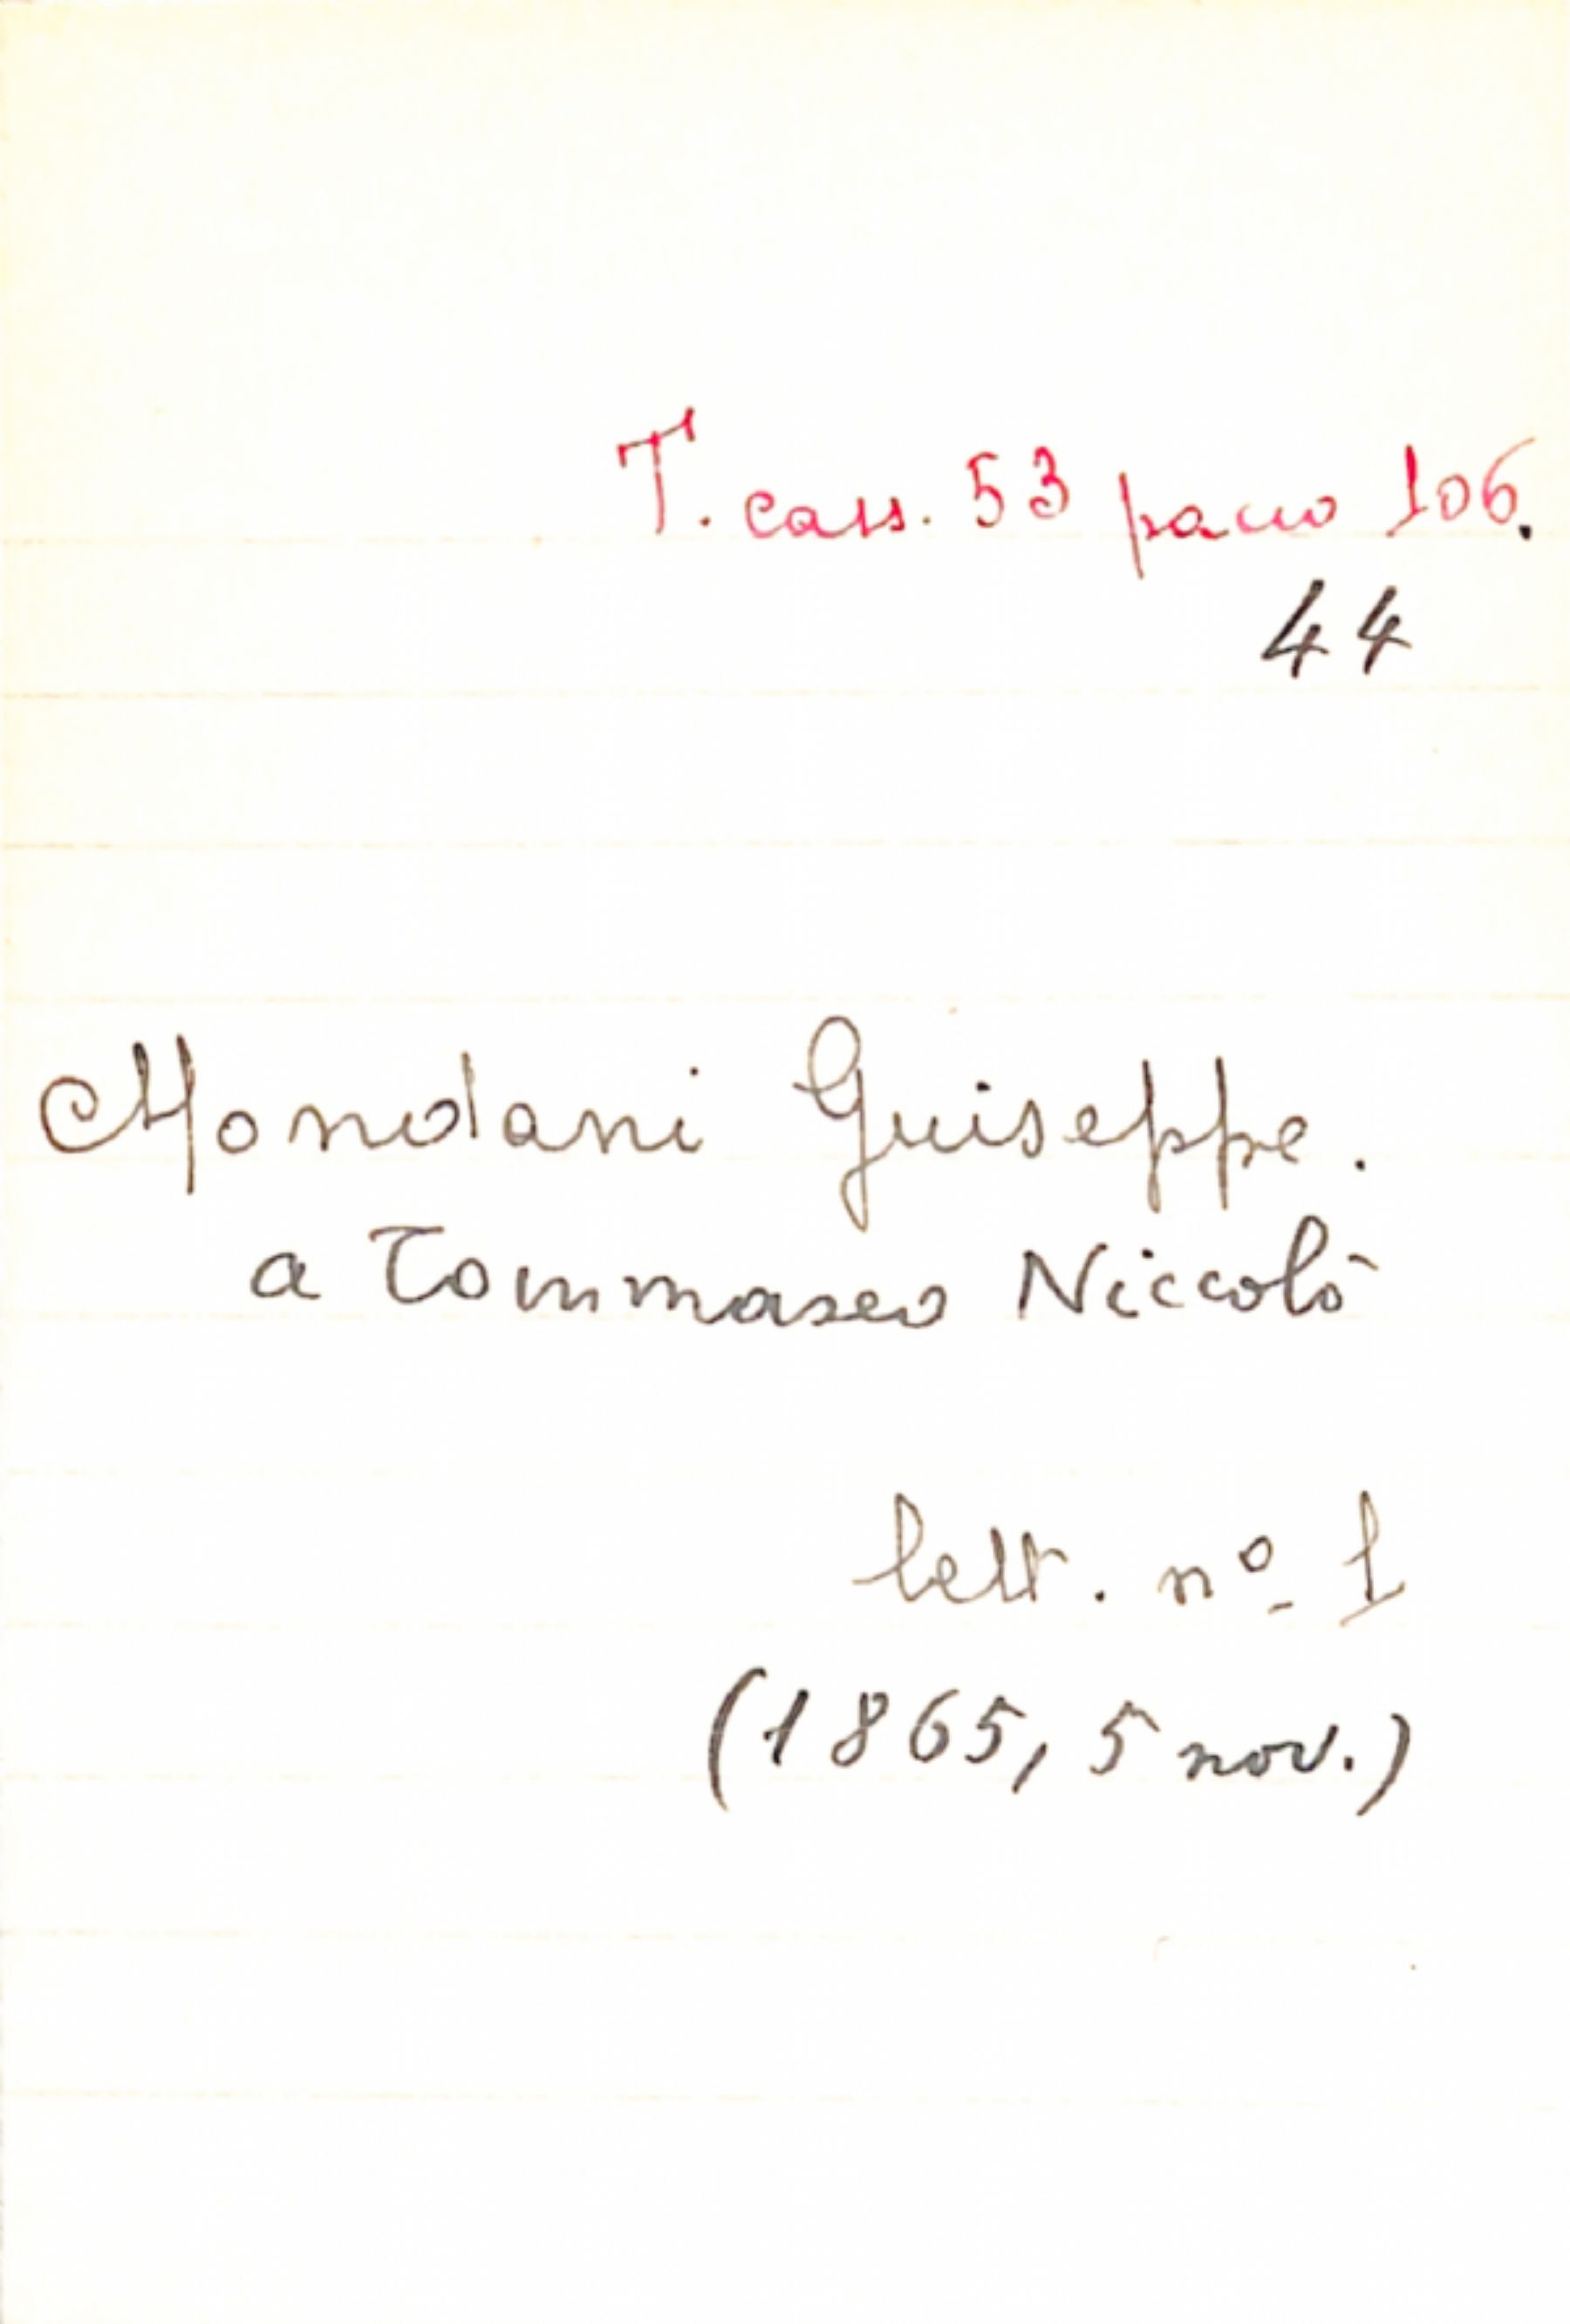 T. cass. 53 pacco 106.
44
Mondani Giuseppe.
a Tommaseo Niccolò
lett. nº 1
(1865, 5 nov.)